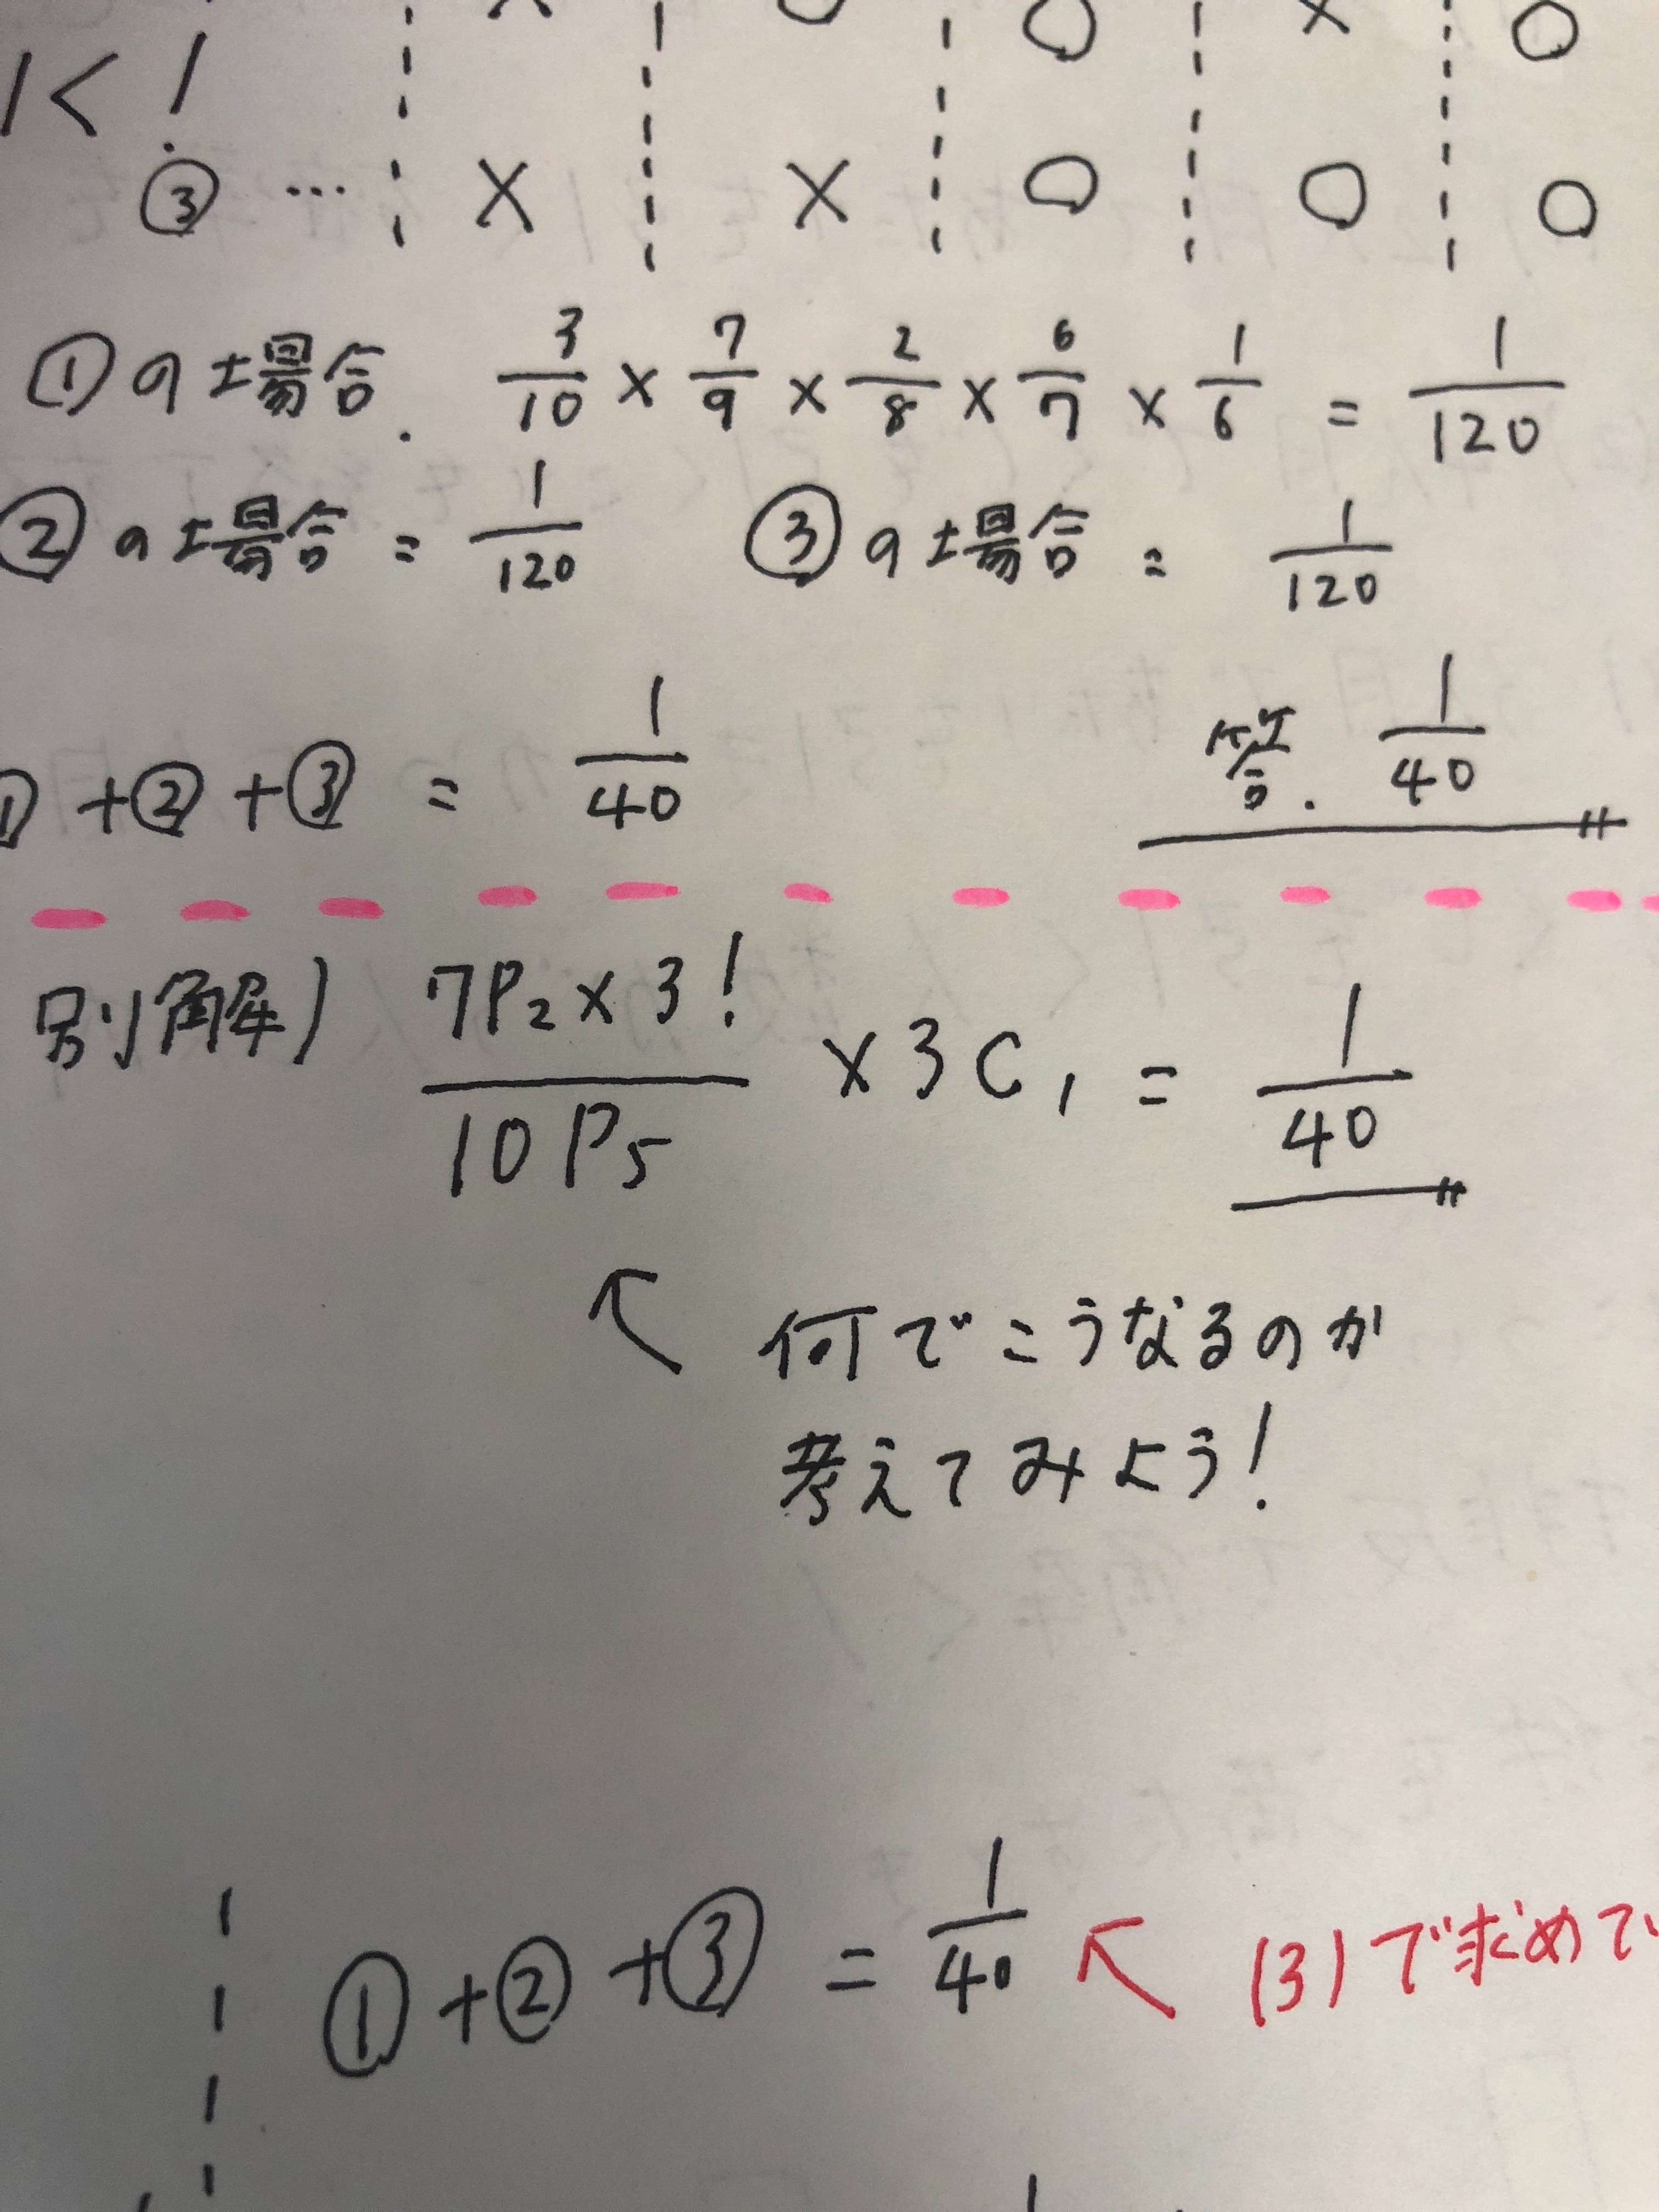 1く!
③ … × × ○ ○ ○
①の場合. 3/10 × 7/9 × 2/8 × 6/7 × 1/6 = 1/120
②の場合 = 1/120 ③の場合 = 1/120
①+②+③ = 1/40 答. 1/40
別解) 7P2×3!/10P5 ×3C1 = 1/40
↖ 何でこうなるのか
考えてみよう!
①+②+③ = 1/40 ↖ (3)で求めて